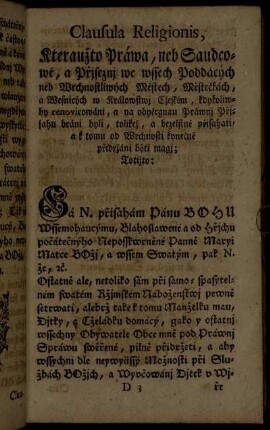 Clausula Religionis,
Kteraužto Práwa, neb Saudco-
wé, a Přjsežnj we wssech Poddacých
neb Wrchnostliwých Městech, Městečkách,
a Wesnicých w Králowstwj Cžeském, kdykoliw-
by renovirowáni, a na obyčegnau Práwnj Přj-
sahu bráni byli, tolikéž, a bezelstně přisahati,
a k tomu od Wrchnosti konečně
přidržáni býti magj;
Totižto:
Já N. přisahám Pánu BOHU
Wssemohaucýmu, Blahoslawené a od Hřjchu
počátečnjho Neposskwrněné Panně Maryi
Matce BOžj, a wssem Swatým, pak N.
N. ꝛc. ꝛc.
Ostatně ale, netoliko sám při samo-spasytel-
ném swatém Ržjmském Náboženstwj pewně
setrwati, alebrž také k tomu Manželku mau,
Djtky, a Cželádku domácý, gako y ostatnj
wssechny Obywatele Obce mně pod Práwnj
Spráwu swěřené, pilně přidržeti, a aby
wssychni dle neywyžssý Možnosti při Slu-
žbách BOžjch, a Wyučowánj Djtek w Wj-
D 3 ře